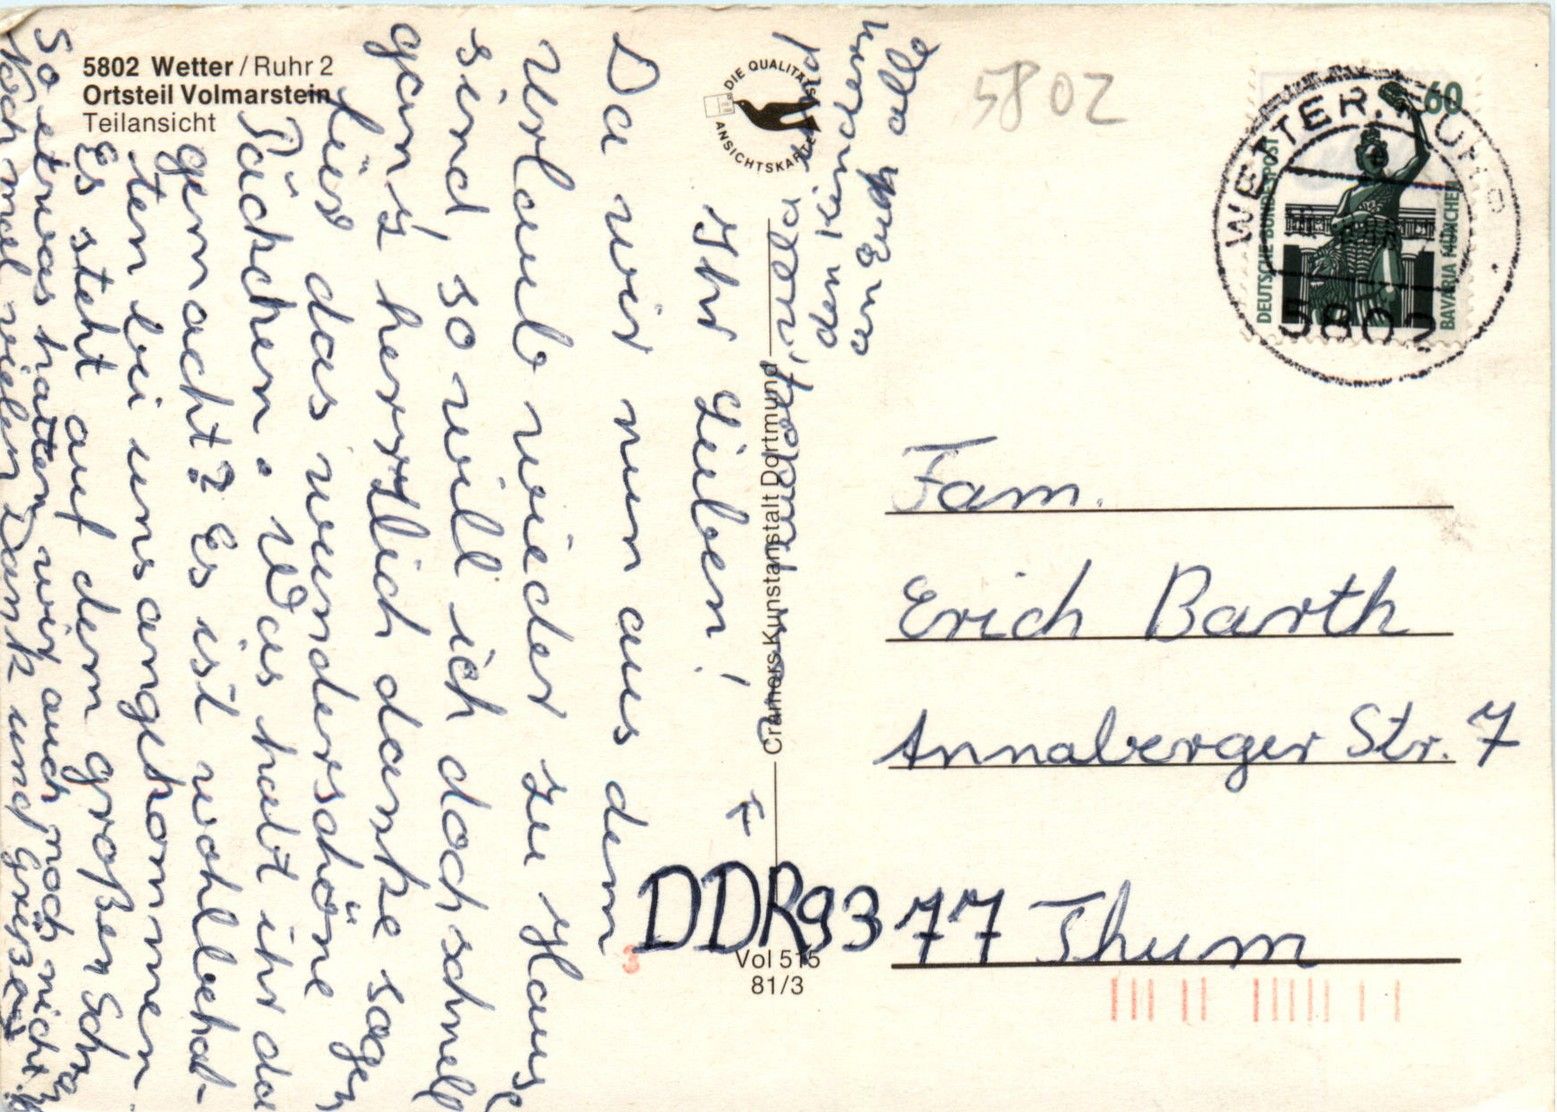 5802 Wetter / Ruhr 2
Ortsteil Volmarstein
Teilansicht
DIE QUALITÄTS
ANSICHTSKARTE
5802
WETTER, RUHR
5802
60
DEUTSCHE BUNDESPOST
BAVARIA MÜNCHEN
Cramers Kunstanstalt Dortmund
Vol 515
81/3
Fam.
Erich Barth
Annaberger Str. 7
DDR 9377 Thum
3
Ihr Lieben!
Da wir nun aus dem
Urlaub wieder zu Hause
sind, so will ich doch schnell
ganz herzlich danke sagen
für das wunderschöne
Päckchen. Was habt ihr da
gemacht? Es ist wohlbehal-
ten bei uns angekommen
Es steht auf dem großen Schra
so etwas hatten wir auch noch nicht.
Nochmal vielen Dank und Grüße
Rudolf, und
den Kindern
an Euch alle